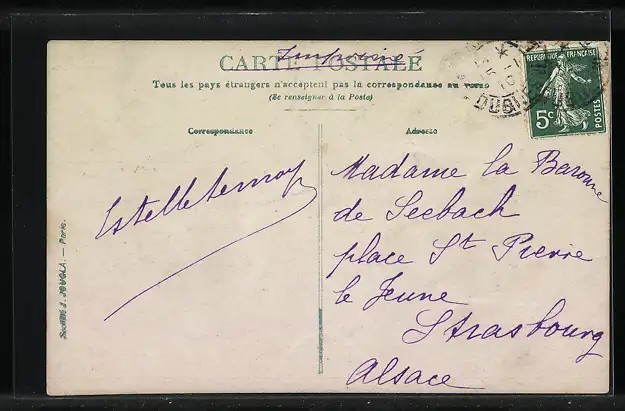 Imprimé
CARTE POSTALE
Tous les pays étrangers n'acceptent pas la correspondance au verso
(Se renseigner à la Poste)
Correspondance
Adresse
REPUBLIQUE FRANÇAISE
5c
POSTES
Madame la Baronne
de Seebach
place St Pierre
le Jeune
Strasbourg
Alsace
J. JOUGLA. — Paris.